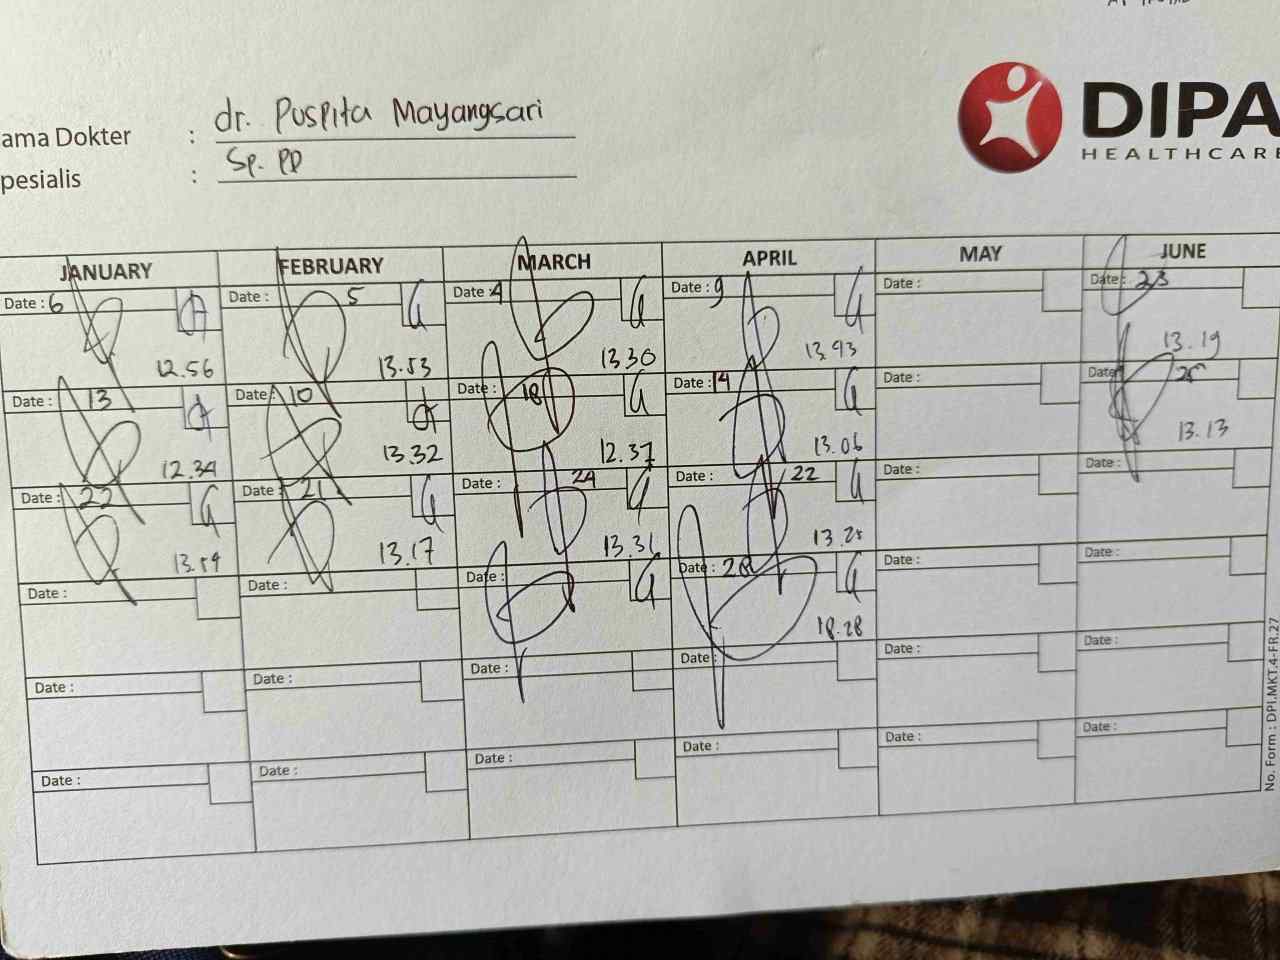 ama Dokter : dr. Puspita Mayangsari
pesialis : Sp. PD
DIPA
HEALTHCARE
JANUARY FEBRUARY MARCH APRIL MAY JUNE
Date : 6 Date : 5 Date : 4 Date : 9 Date : Date : 23
12.56 13.53 13.30 13.43 13.19
Date : 13 Date : 10 Date : 18 Date : 14 Date : Date : 25
12.34 13.32 12.37 13.06 13.13
Date : 22 Date : 21 Date : 24 Date : 22 Date : Date :
13.17 13.31 13.25
Date : Date : Date : Date : 28 Date : Date :
18.28
Date : Date : Date : Date : Date : Date :
Date : Date : Date : Date : Date : Date :
No. Form : DPI.MKT.4-FR.27